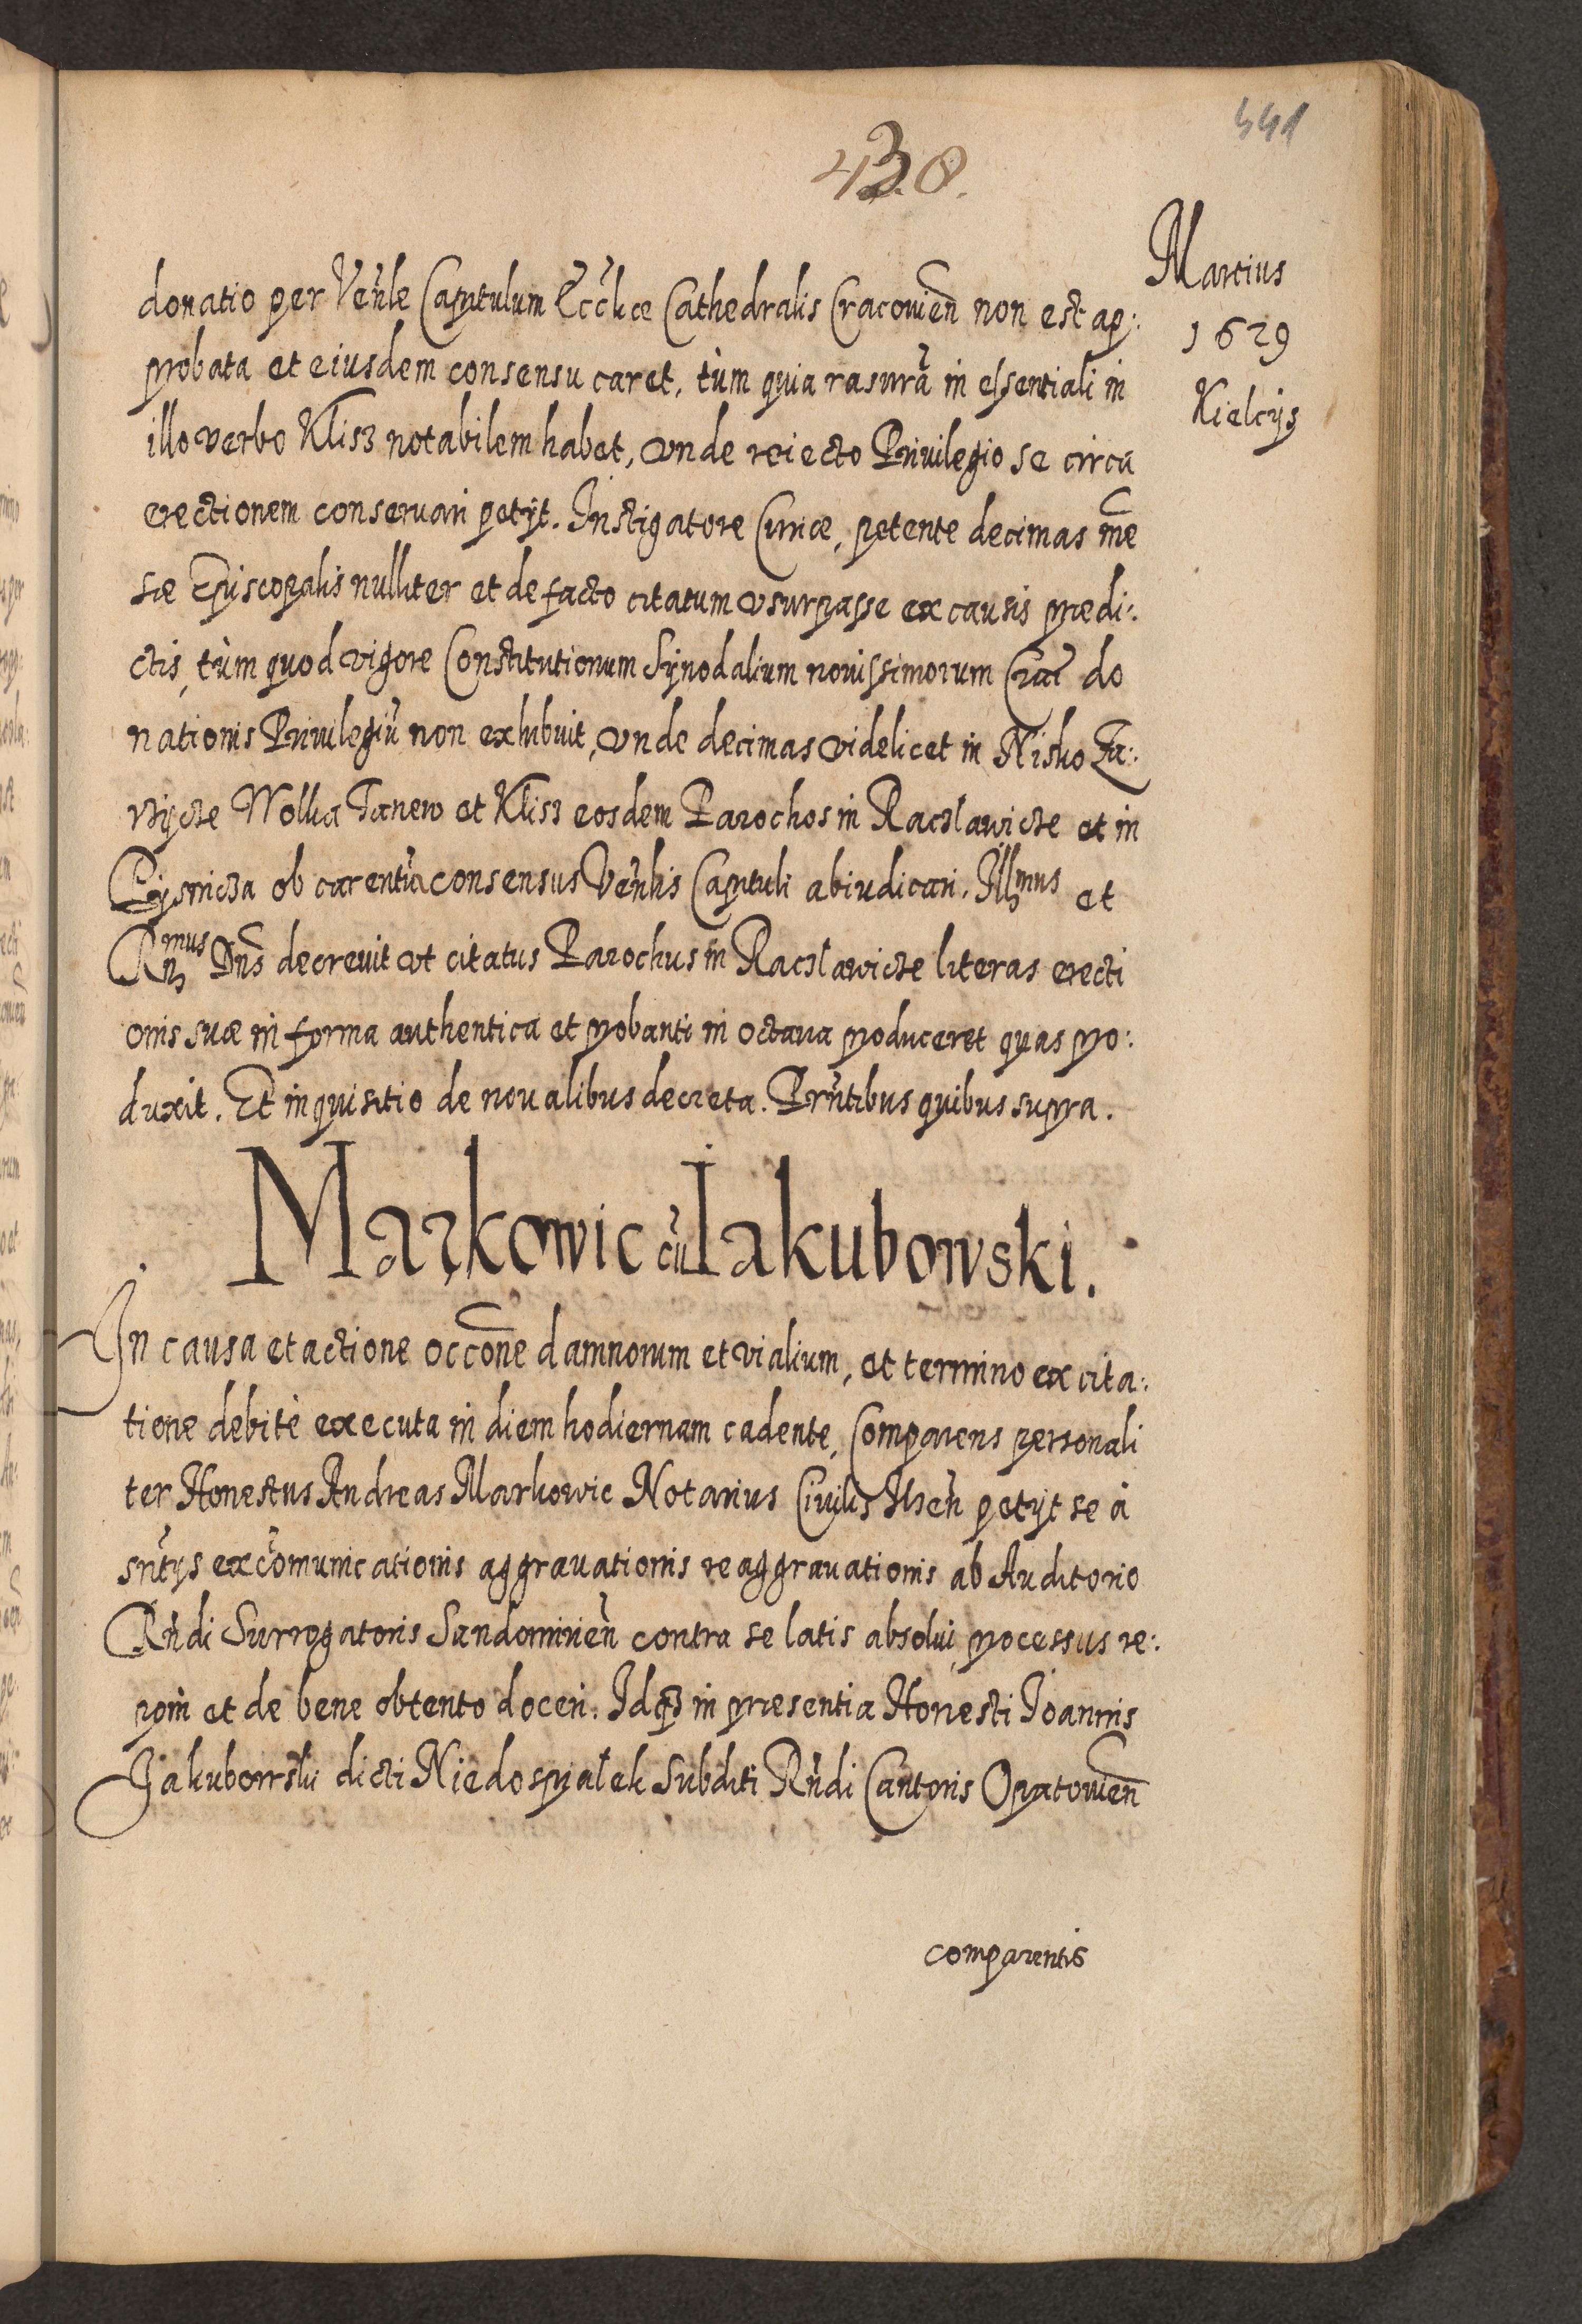 441
430.
Martius
1629
Kielcijs
donatio per Venle Capitulum Ecclice Cathedralis Cracovien non est ap:
probata et eiusdem consensu caret, tùm quia rasurā in essentiali in
illo verbo Klisz notabilem habet, vnde reiecto Privilegio se circa
erectionem conservari petijt. Instigatore Curiæ, petente decimas me
sæ Episcopalis nulliter et de facto citatum vsurpasse ex causis prædi:
ctis, tùm quod vigore Constitutionum Synodalium novissimorum do
nationis Privilegiū non exhibuit, vnde decimas videlicet in Nisko Za:
rzycze Wolka Tanew et Klisz eosdem Parochos in Raclawicze et in
ob carentia consensus Venlis Capituli abiudicari. Illmus et
Rmus Dns decrevit vt citatus Parochus in Raclawicze literas erecti
onis suæ in forma authentica et probanti in octava produceret quas pro:
duxit. Et inquisitio de novalibus decreta. Prntibus quibus supra.
Markowic cū Iakubowski.
In causa et actione occone damnorum et vialium, et termino ex cita:
tione debitè executa in diem hodiernam cadente, Comparens personali
ter Honestus Andreas Markowic Notarius Civilis Ilzen petijt se à
sntijs excomunicationis aggravationis reaggravationis ab Auditorio
Rndi Surrogatoris Sandomirien contra se latis absolvi, processus re:
poni et de bene obtento doceri. Idq3 in præsentia Honesti Joannis
Jakubowski dicti Niedospialek Subditi Rndi Cantoris Opatovien
comparentis